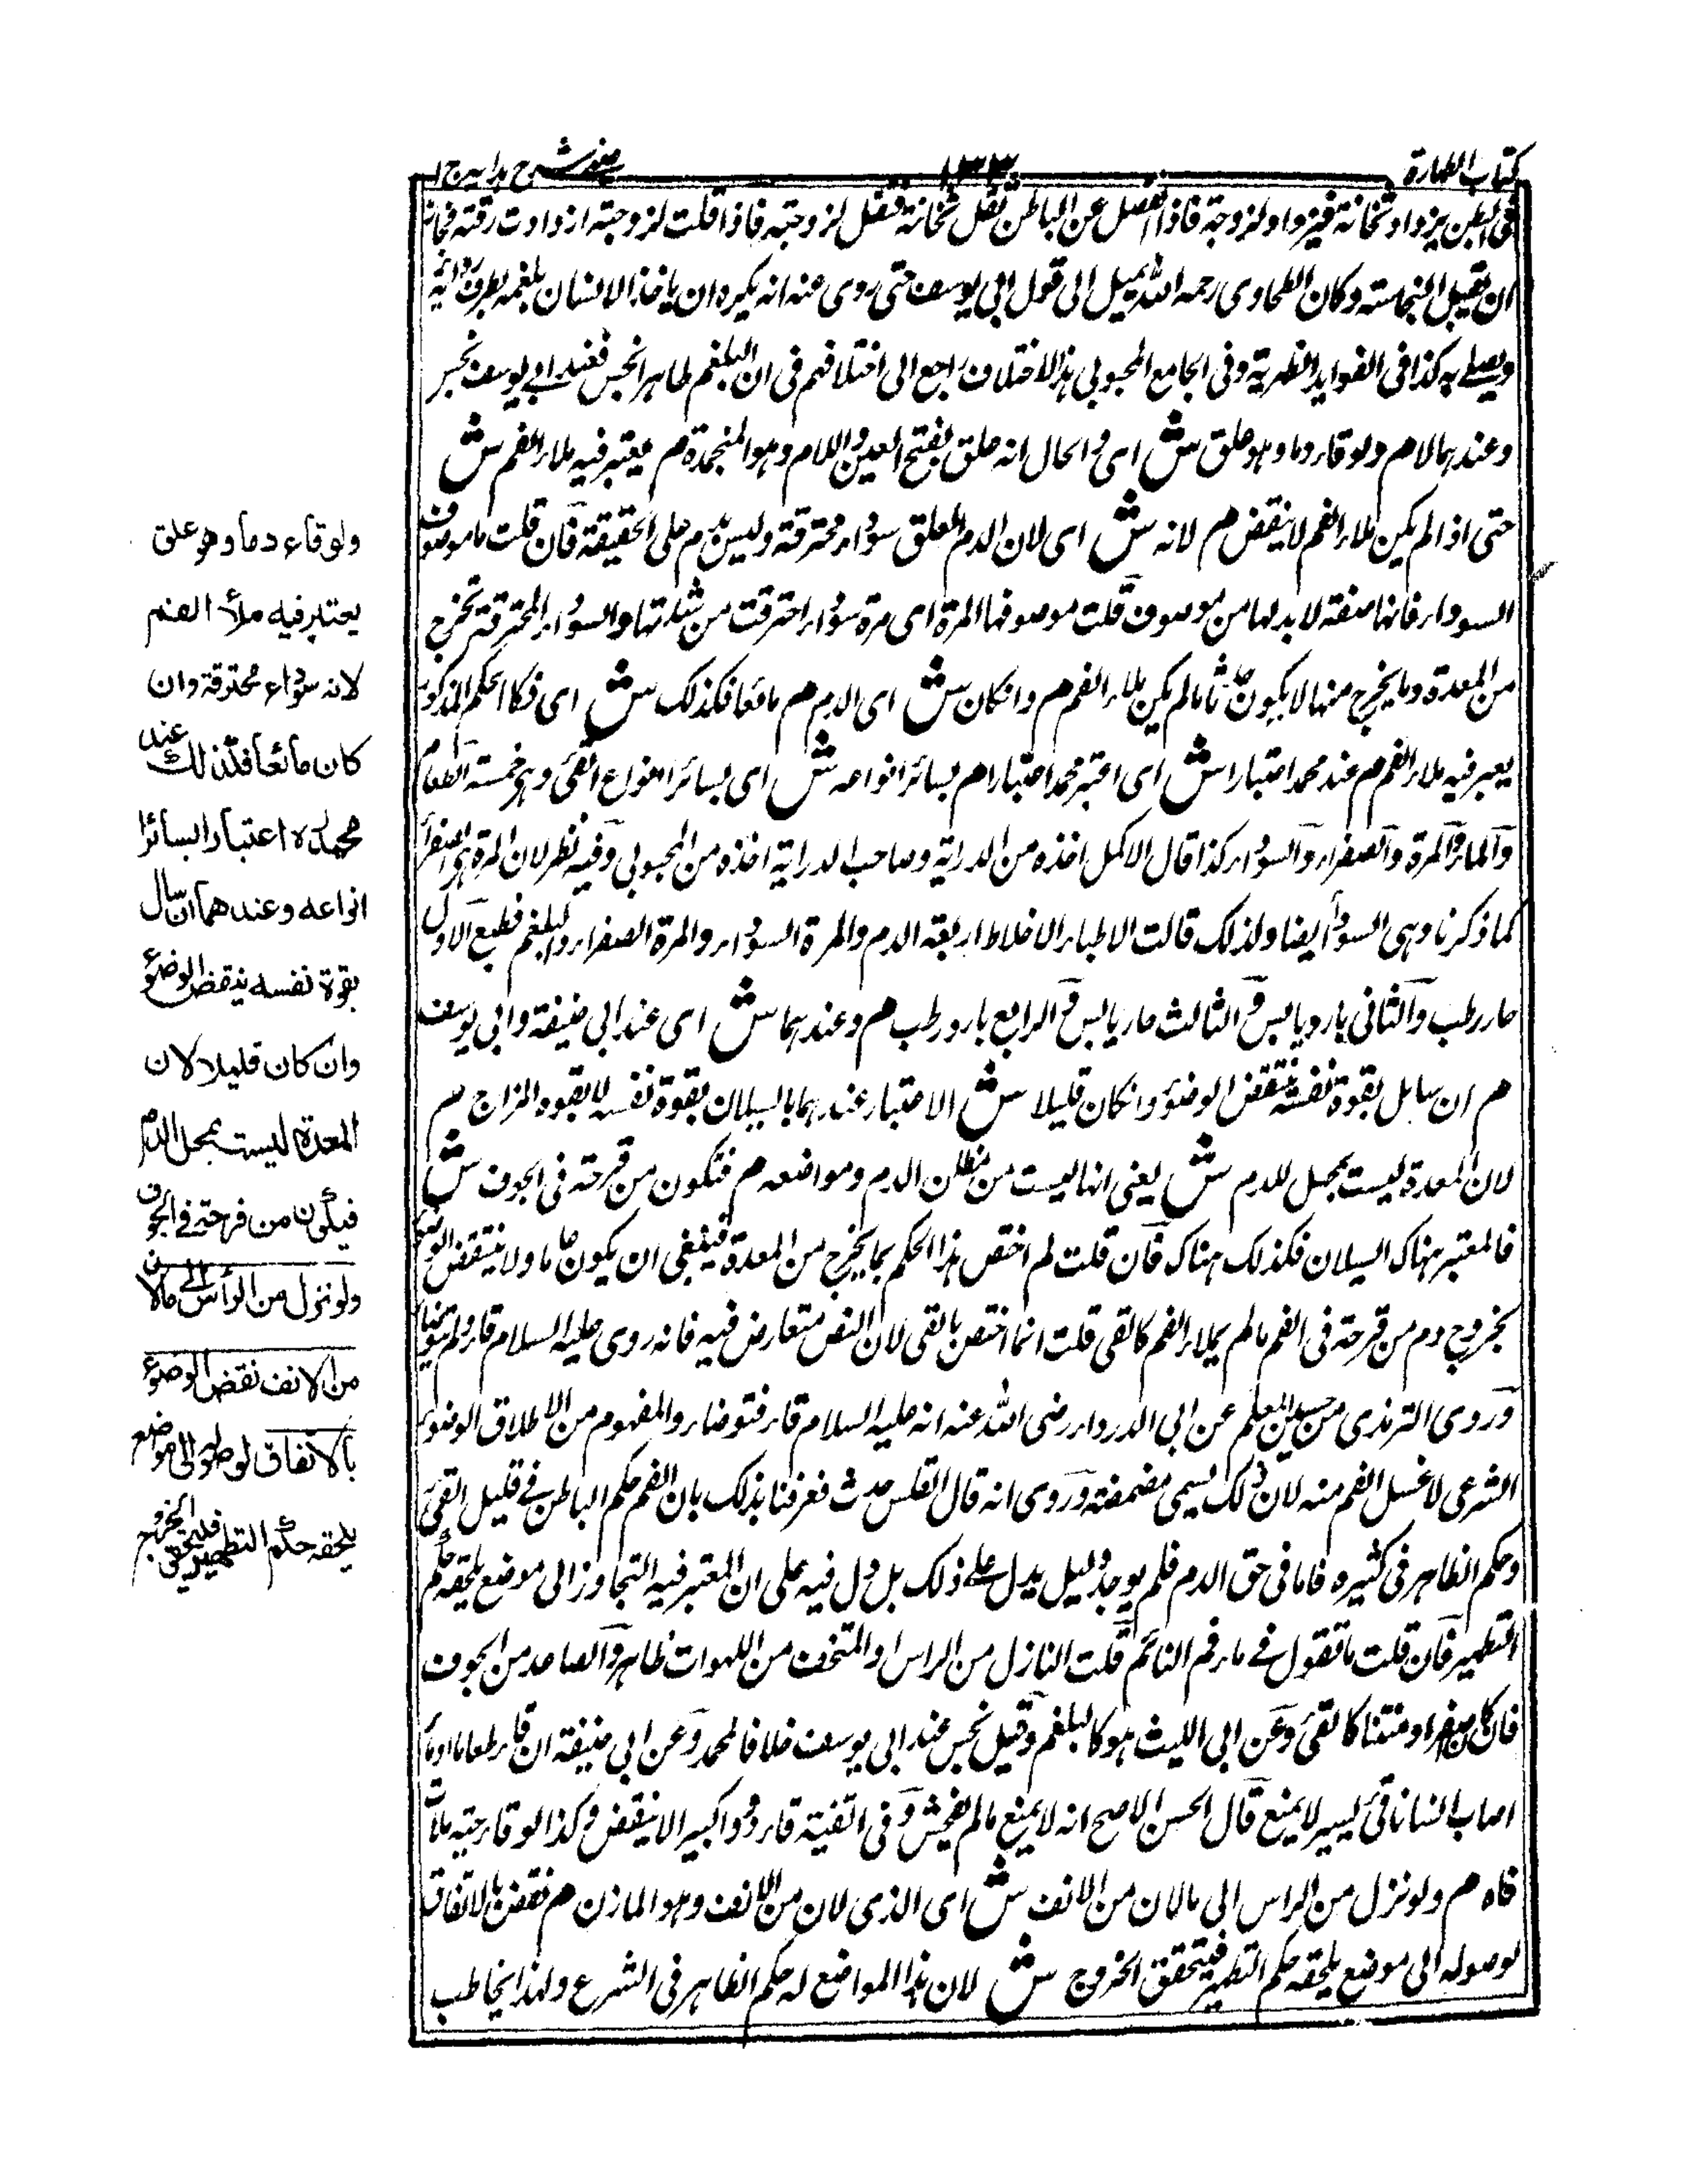 كتاب الطهارة
١٣٣
عينى شرح هدايه ج ١
فى البطن يزداد ثخانة فيزداد لزوجة فاذا انفصل عن الباطن تقل ثخانة فتقل لزوجته فاذا قلت لزوجته ازدادت رقته فجاز
ان يقبل النجاسة وكان الطحاوى رحمه الله يميل الى قول ابى يوسف حتى روى عنه انه يكره ان ياخذ الانسان بلغمه بطرف ردائه
ويصلى به كذا فى الفوايد الظهرية وفى الجامع المحبوبى هذا الاختلاف راجع الى اختلافهم فى ان البلغم طاهر ام نجس فعند ابى يوسف نجس
وعندهما لا م ولو قاء دما وهو علق ش اى والحال انه علق بفتح العين واللام وهو المنجمدة م يعتبر فيه ملاء الفم ش
حتى اذا لم يكن ملاء الفم لا ينقض م لانه ش اى لان الدم العلق سوداء محترقة وليس بدم على الحقيقة فان قلت ما موصوف
السوداء فانها صفة لا بد لها من موصوف قلت موصوفها المرة اى مرة سوداء احترقت من شدتها والسوداء المحترقة تخرج
من المعدة وما يخرج منها لا يكون حدثا ما لم يكن ملاء الفم م وان كان ش اى الدم م مائعا فكذلك ش اى فكا الحكم المذكور
يعبر فيه ملاء الفم م عند محمد اعتبارا ش اى اعتبر محمد اعتبارا م بسائر انواعه ش اى بسائر انواع القئ وهى خمسة الطعام
والماء والمرة والصفراء والسوداء كذا قال الاكمل اخذه من الدراية وصاحب الدراية اخذه من المحبوبى وفيه نظر لان المرة هى الصفراء
كما ذكرنا وهى السوداء أيضا ولذلك قالت الاطباء الاخلاط اربعة الدم والمرة السوداء والمرة الصفراء والبلغم فطبع الاول
حار رطب والثانى بارد يابس والثالث حار يابس والرابع بارد رطب م وعندهما ش اى عند ابى حنيفة وابى يوسف
م ان سال بقوة نفسه ينتقض الوضوء وان كان قليلا ش الاعتبار عندهما بالسيلان بقوة نفسه لا بقوه المزاج م
لان المعدة ليست بمحل للدم ش يعنى انها ليست من مظان الدم ومواضعه م فتكون من قرحة فى الجوف ش
فالمعتبر هناك السيلان فكذلك هناك فان قلت لم اختص هذا الحكم بما يخرج من المعدة فينبغى ان يكون عاما ولا ينتقض الوضوء
بخروج دم من قرحة فى الفم ما لم يملاء الفم كالقى قلت انما اختص بالقى لان النص متعارض فيه فانه روى عليه السلام قاء ولم يتوضا
وروى الترمذى من حسين المعلم عن ابى الدرداء رضى الله عنه انه عليه السلام قاء فتوضاء والمفهوم من الاطلاق الوضوء
الشرعى لا غسل الفم منه لان ذلك يسمى مضمضة وروى انه قال القلس حدث فعرفنا بذلك بان الفم حكم الباطن فى قليل القئ
وحكم الظاهر فى كثيره فاما فى حق الدم فلم يوجد دليل يدل على ذلك بل دل فيه على ان المعتبر فيه التجاوز الى موضع يلحقه حكم
التطهير فان قلت ما تقول فى ماء فم النائم قلت النازل من الراس والمتخف من اللهوات طاهر والصاعد من الجوف
فان كان صفراء ومنتنا كالقئ وعن ابى الليث هو كالبلغم وقيل نجس عند ابى يوسف خلافا لمحمد وعن ابى حنيفة ان قاء طعاما او ماء
اصاب انسانا قئ يسير لا يمنع قال الحسن الاصح انه لا يمنع ما لم يفحش وفى القنية قاء دودا كبيرا لا ينقض وكذا لو قاء حية ملات
فاه م ولو نزل من الراس الى ما لان من الانف ش اى الذى لان من الانف وهو المازن م نقض بالاتفاق
لوصوله الى موضع يلحقه حكم التطهير فيتحقق الخروج ش لان هذا المواضع له حكم الظاهر فى الشرع ولهذا يخاطب
ولو قاء دما وهو علق
يعتبر فيه ملأ الفم
لانه سوداء محترقة وان
كان مائعا فكذلك عند
محمد ره اعتبارا بسائر
انواعه وعندهما ان سال
بقوة نفسه ينقض الوضوء
وان كان قليلا لان
المعدة ليست بمحل الدم
فيكون من قرحة فى الجوف
ولو نزل من الرأس الى مالان
من الانف نقض الوضوء
بالاتفاق لوصوله الى موضع
يلحقه حكم التطهير فيتحقق الخروج